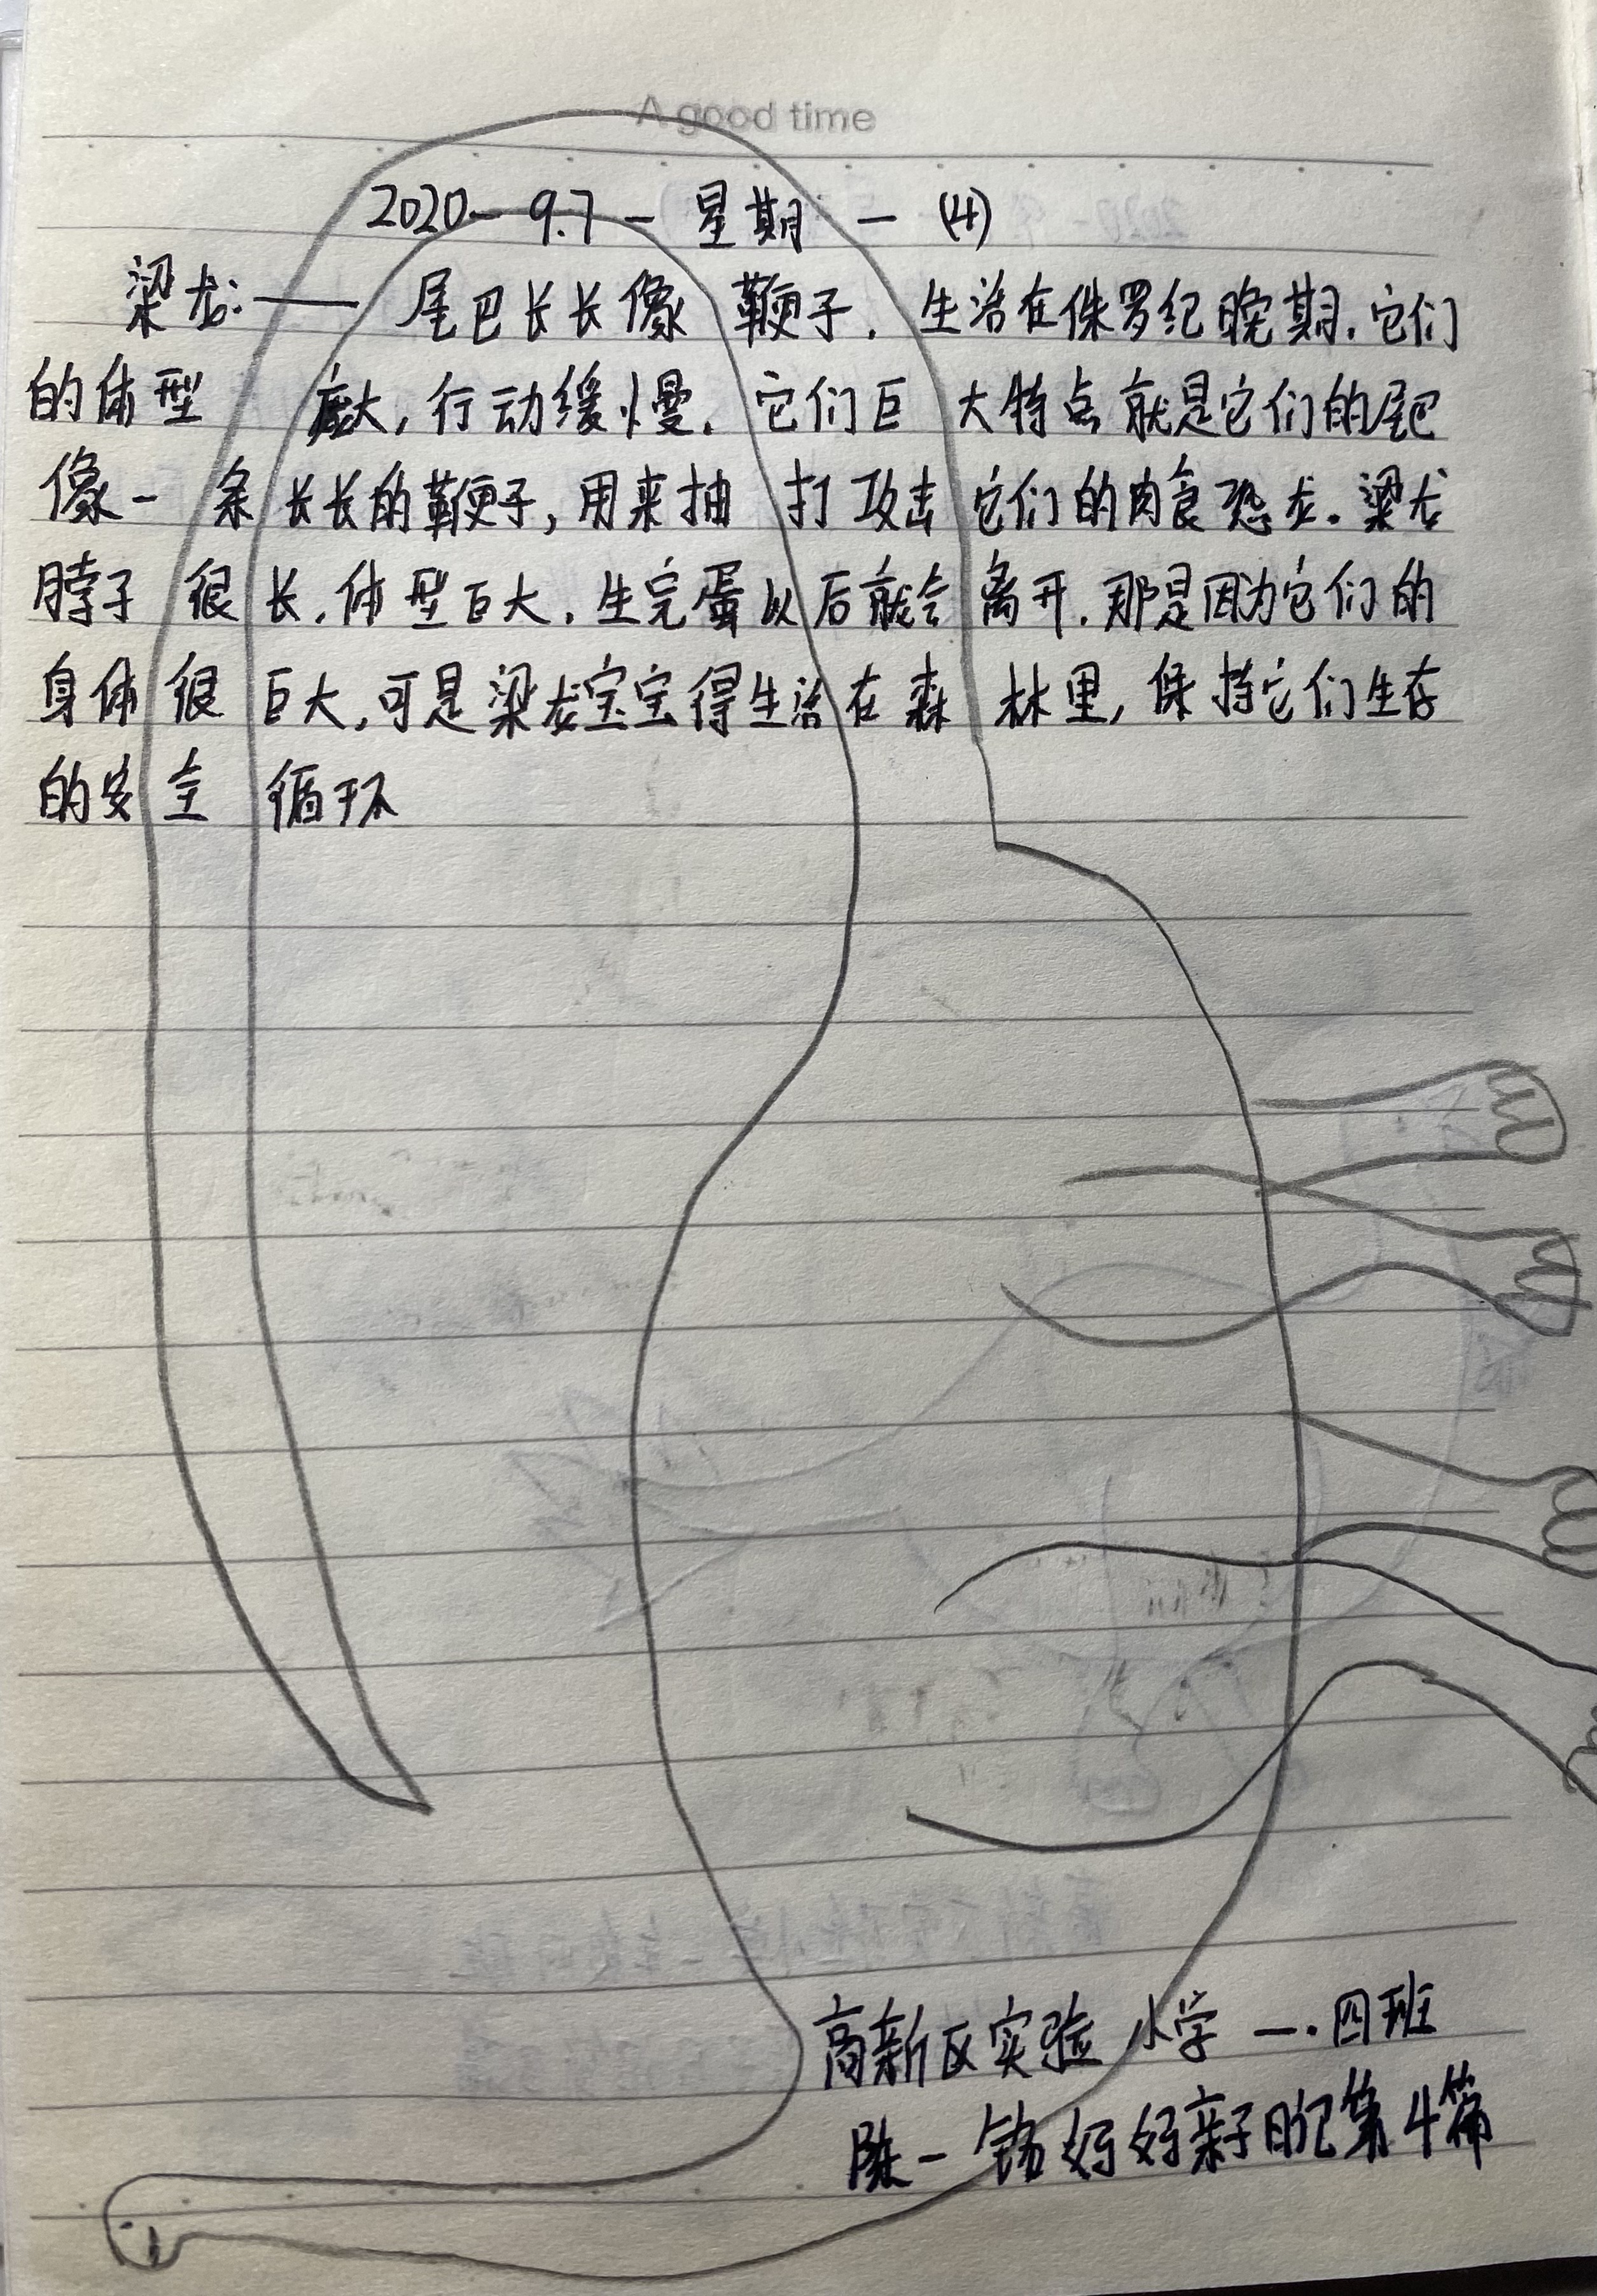 A good time
2020-9.7-星期一(4)
梁龙:——尾巴长长像鞭子.生活在侏罗纪晚期.它们
的体型庞大,行动缓慢.它们巨大特点就是它们的尾巴
像一条长长的鞭子,用来抽打攻击它们的肉食恐龙.梁龙
脖子很长.体型巨大.生完蛋以后就会离开.那是因为它们的
身体很巨大,可是梁龙宝宝得生活在森林里,保持它们生存
的安全循环
高新区实验小学一.四班
陈一铭妈妈亲子日记第4篇